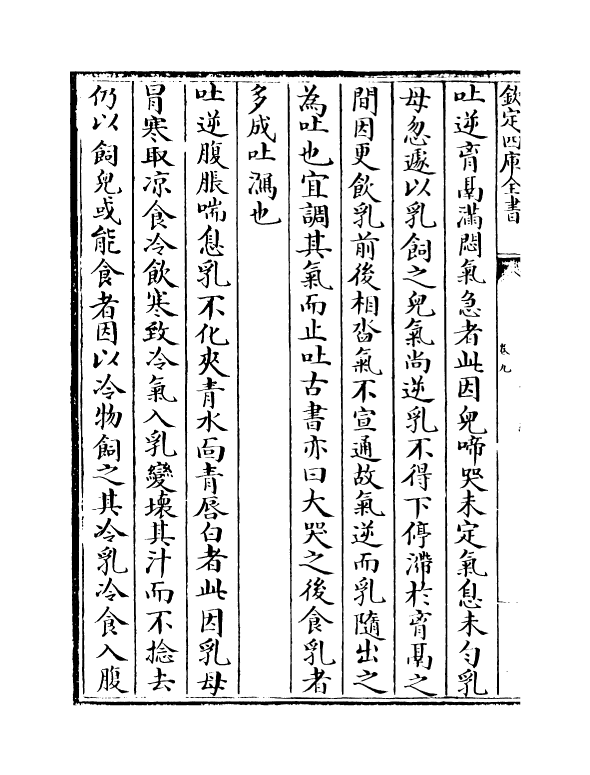 欽定四庫全書
卷九
吐逆胷鬲滿悶氣急者此因兒啼哭未定氣息未勻乳
母忽遽以乳飼之兒氣尚逆乳不得下停滯於胷鬲之
間因更飲乳前後相沓氣不宣通故氣逆而乳隨出之
為吐也宜調其氣而止吐古書亦曰大哭之後食乳者
多成吐瀉也
吐逆腹脹喘息乳不化夾青水面青唇白者此因乳母
冒寒取凉食冷飲寒致冷氣入乳變壞其汁而不捻去
仍以飼兒或能食者因以冷物飼之其冷乳冷食入腹